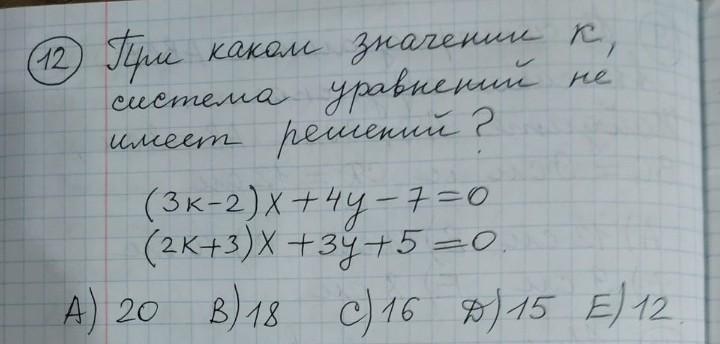 12 При каком значении к,
система уравнений не
имеет решений?
(3к-2)х+4у-7=0
(2к+3)х+3у+5=0.
А) 20 В) 18 С) 16 Д) 15 Е) 12.